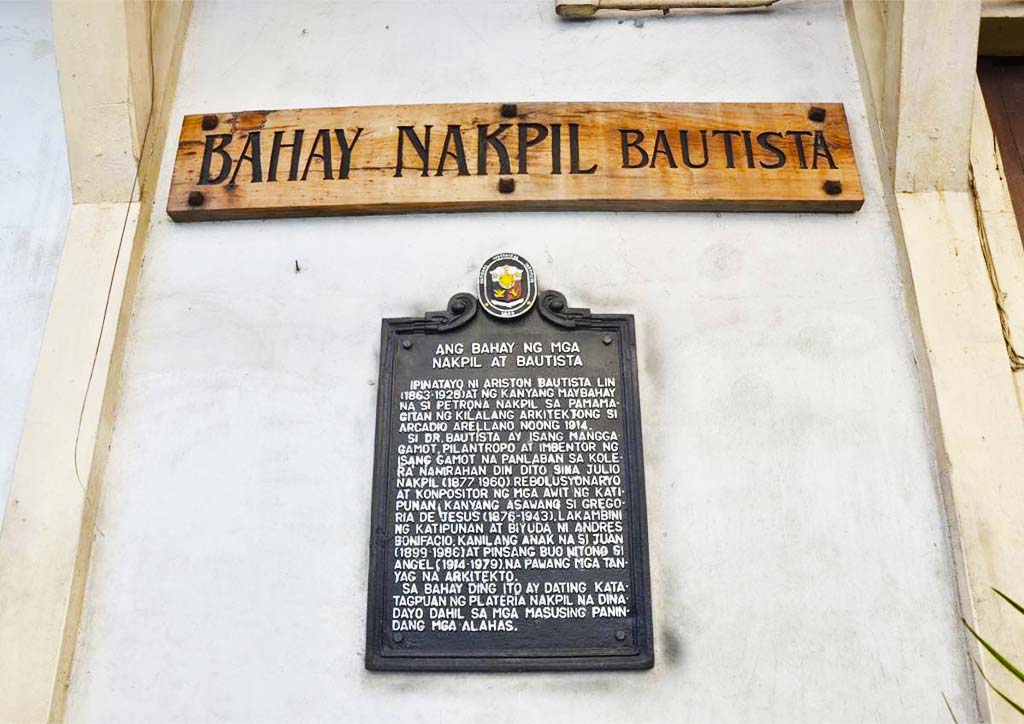 BAHAY NAKPIL BAUTISTA
ANG BAHAY NG MGA
NAKPIL AT BAUTISTA
IPINATAYO NI ARISTON BAUTISTA LIN
(1863-1928) AT NG KANYANG MAYBAHAY
NA SI PETRONA NAKPIL SA PAMAMA-
GITAN NG KILALANG ARKITEKTONG SI
ARCADIO ARELLANO NOONG 1914.
SI DR. BAUTISTA AY ISANG MANGGA-
GAMOT, PILANTROPO AT IMBENTOR NG
ISANG GAMOT NA PANLABAN SA KOLE-
RA NANIRAHAN DIN DITO SINA JULIO
NAKPIL (1877-1960) REBOLUSYONARYO
AT KONPOSITOR NG MGA AWIT NG KATI-
PUNAN, KANYANG ASAWANG SI GREGO-
RIA DE JESUS (1876-1943), LAKAMBINI
NG KATIPUNAN AT BIYUDA NI ANDRES
BONIFACIO, KANILANG ANAK NA SI JUAN
(1899-1986) AT PINSANG BUO NITONG SI
ANGEL (1914-1979), NA PAWANG MGA TAN-
YAG NA ARKITEKTO.
SA BAHAY DING ITO AY DATING KATA-
TAGPUAN NG PLATERIA NAKPIL NA DINA-
DAYO DAHIL SA MGA MASUSING PANIN-
DANG MGA ALAHAS.